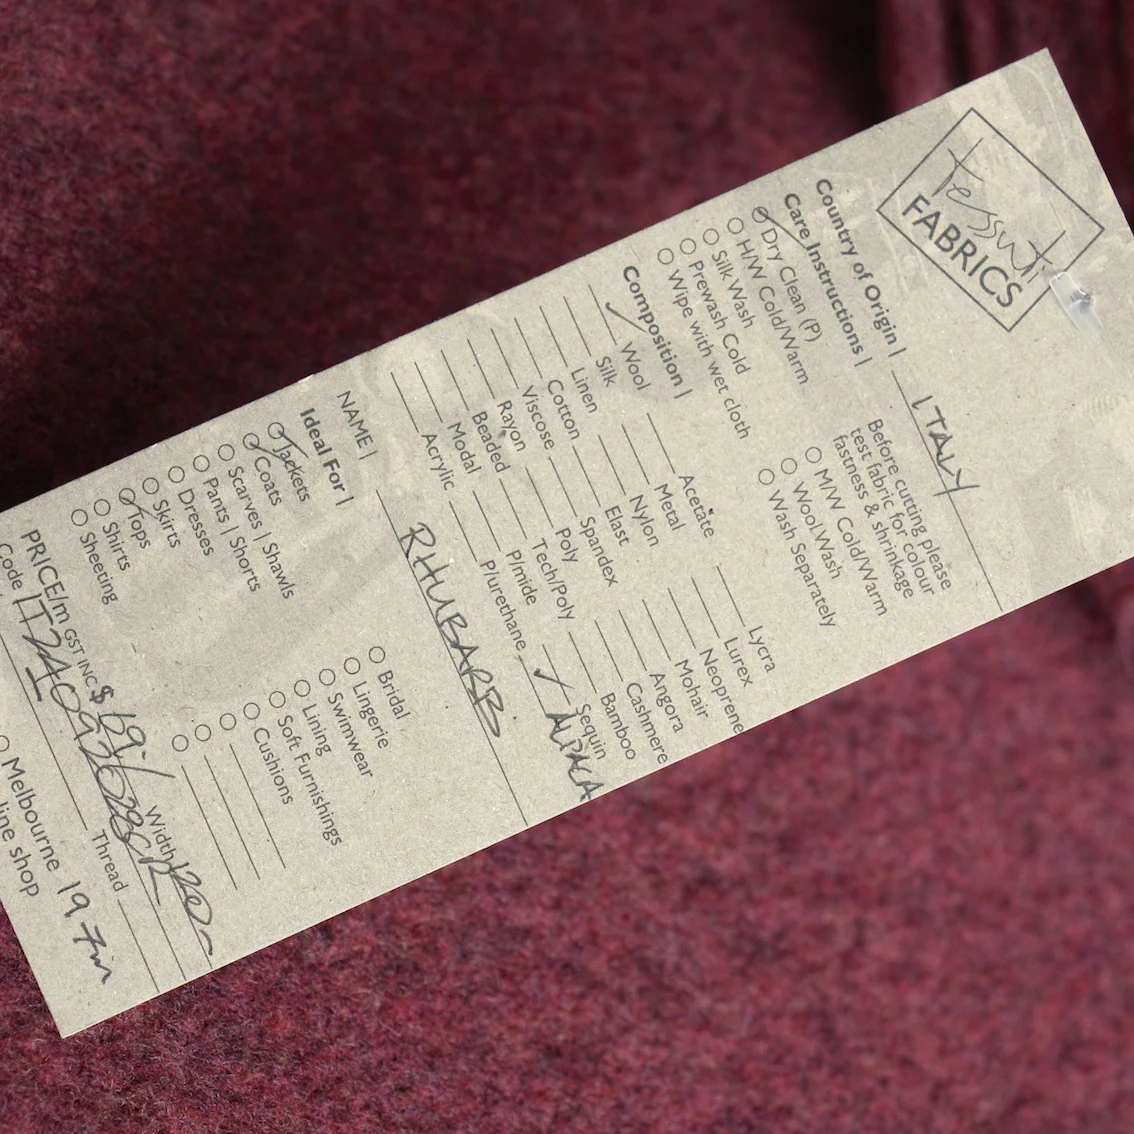 Tessuti
FABRICS
Country of Origin | ITALY
Care Instructions |
Dry Clean (P)
H/W Cold/Warm
Silk Wash
Prewash Cold
Wipe with wet cloth
Before cutting please
test fabric for colour
fastness & shrinkage
M/W Cold/Warm
Wool Wash
Wash Separately
Composition |
Wool
Silk
Linen
Cotton
Viscose
Rayon
Beaded
Modal
Acrylic
Acetate
Metal
Nylon
Elast
Spandex
Poly
Tech/Poly
P/mide
P/urethane
Lycra
Lurex
Neoprene
Mohair
Angora
Cashmere
Bamboo
Sequin
ALPACA
NAME | RHUBARB
Ideal For |
Jackets
Coats
Scarves | Shawls
Pants | Shorts
Dresses
Skirts
Tops
Shirts
Sheeting
Bridal
Lingerie
Swimwear
Lining
Soft Furnishings
Cushions
PRICE/m GST INC $ 69.- Width
Code Thread
Melbourne 19.7m
line shop